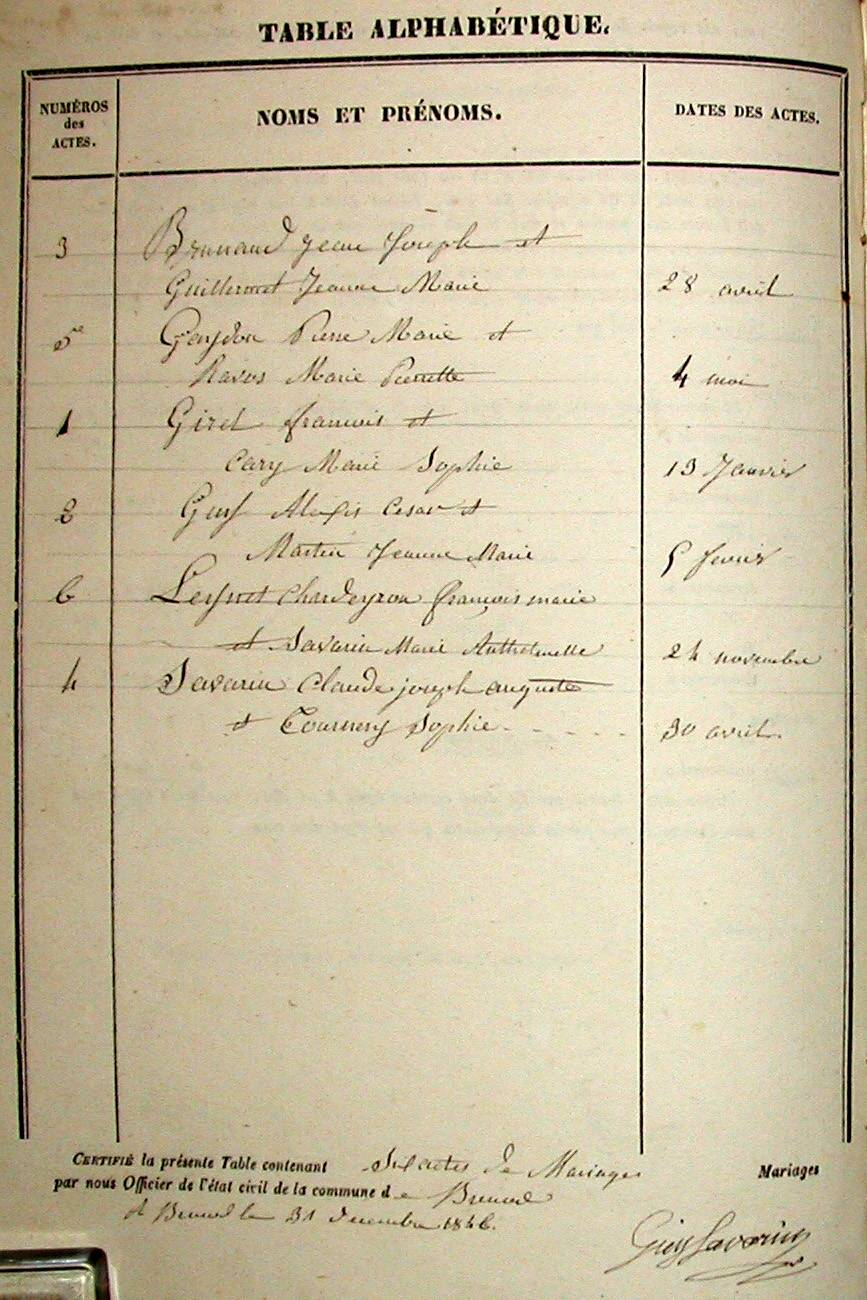 TABLE ALPHABÉTIQUE.
NUMÉROS des ACTES. NOMS ET PRÉNOMS. DATES DES ACTES.
3 Brunand Jean Joseph et
Guillermet Jeanne Marie 28 avril
5e Pierre Marie et
Ravos Marie Pierrette 4 mai
1 Girel françois et
Cary Marie Sophie 13 Janvier
2 Guy Alexis Cesar et
Martin Jeanne Marie 5 fevrier
6 Chardeyron françois marie
et Savarin Marie Anthelmette 24 novembre
4 Savarin Claude joseph auguste
et Tournery Sophie - - - - - 30 avril.
CERTIFIÉ la présente Table contenant Six actes de Mariages Mariages
par nous Officier de l'état civil de la commune de
A le 31 decembre 1846.
Guy Savarin